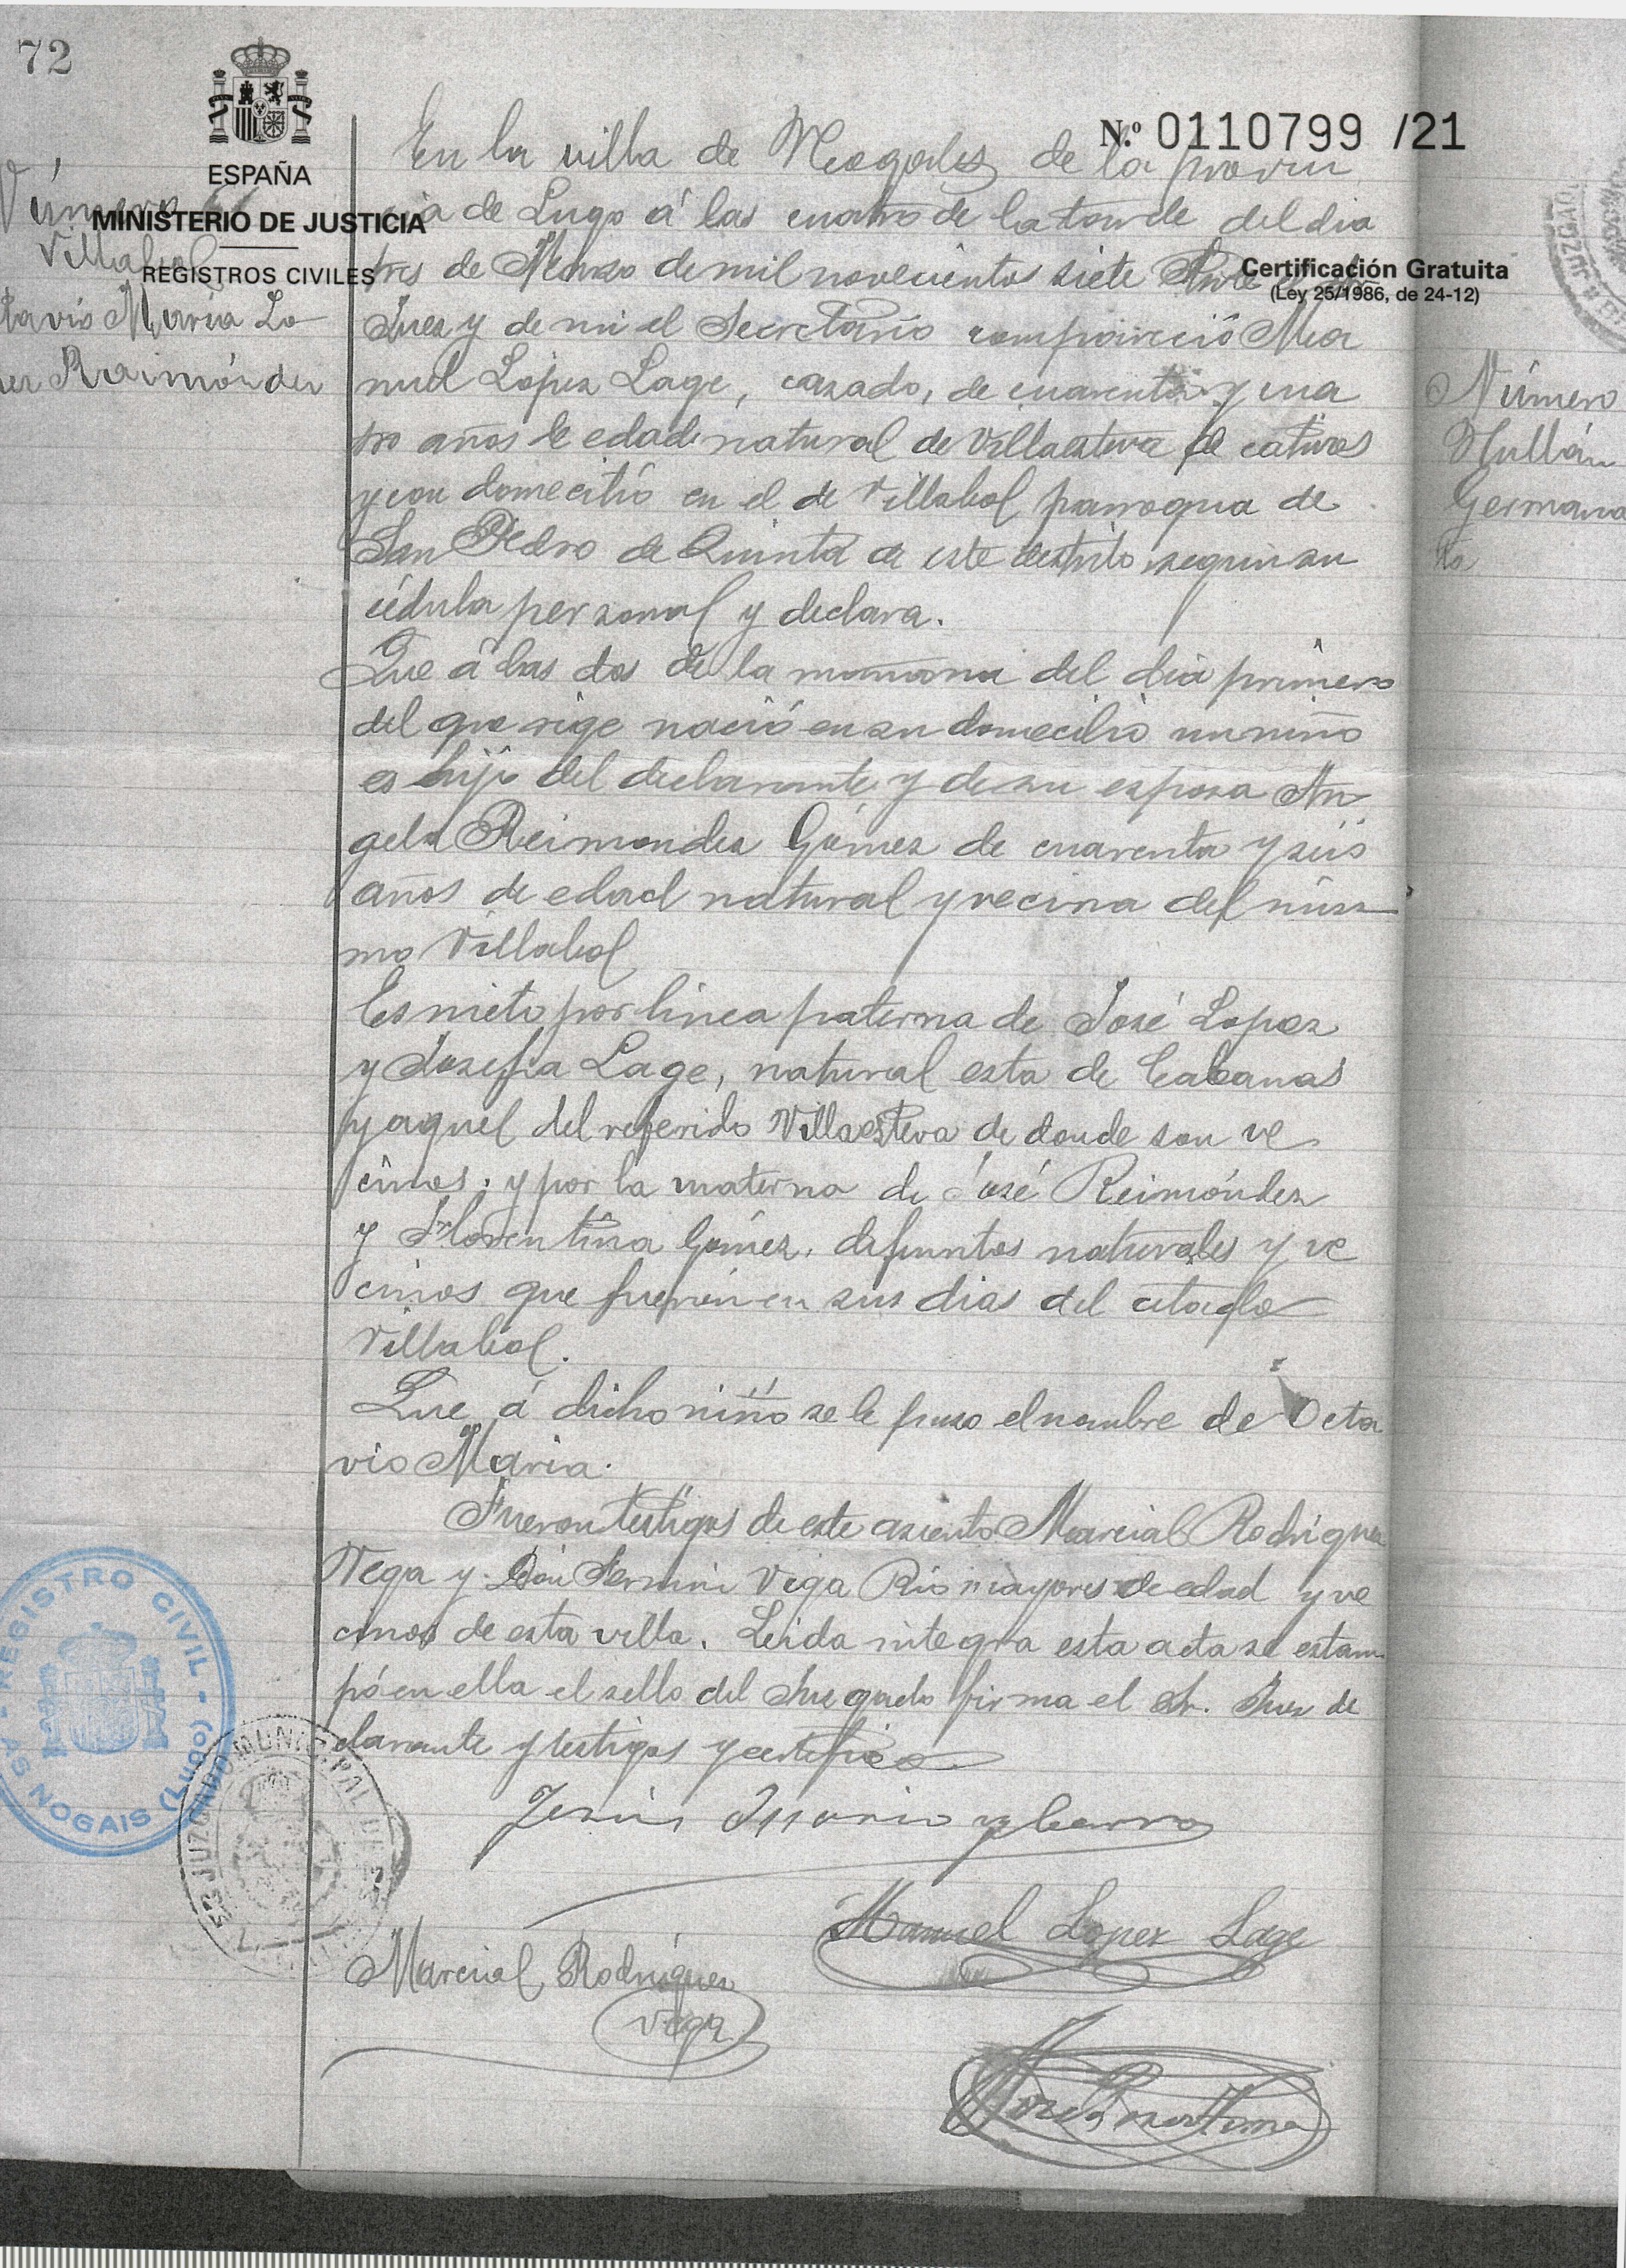 72
ESPAÑA
MINISTERIO DE JUSTICIA
REGISTROS CIVILES
N.º 0110799 /21
Certificación Gratuita
(Ley 25/1986, de 24-12)
Número
Villabol
tavio Maria Lo
Raimóndez
En la villa de Nogales de la provin
cia de Lugo á las cuatro de la tarde del dia
tres de Marzo de mil novecientos siete Ante el Sr.
Juez y de mi el Secretario compareció Ma
nuel Lopez Lage, casado, de cuarenta y cua
tro años de edad natural de Villaesteva de
y con domecilio en el de Villabol parroquia de
San Pedro de Quinta de este destrito segun su
cédula personal y declara.
Que á las dos de la mañana del dia primero
del que rige nació en su domecilio un niño
es hijo del declarante y de su esposa An
gela Reimondez Gómez de cuarenta y seis
años de edad natural y vecina del mis
mo Villabol
Es nieto por linea paterna de José Lopez
y Josefa Lage, natural esta de Cabanas
y aquel del referido Villaesteva de donde son ve
cinos. y por la materna de José Reimóndez
y Florentina Gómez. difuntos naturales y ve
cinos que fueron en sus dias del citado
Villabol.
Que á dicho niño se le puso el nombre de Octa
vio Maria.
Fueron testigos de este asiento Marcial Rodriguez
Vega y Don Fermin Vega Rio mayores de edad y ve
cinos de esta villa. Leida integra esta acta se estam
pó en ella el sello del Juzgado firma el Sr. Juez de
clarante y testigos y certifico
Jesús Osorio y
Manuel Lopez Lage
Marcial Rodríguez
Vega
REGISTRO CIVIL - AS NOGAIS (Lugo)
JUZGADO MUNICIPAL DE
JUZGADO
Número
Nullán
Germana